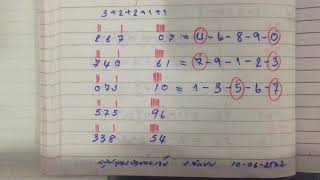 3+2+2+1+1
867 07 = 4-6-8-9-0
740 61 = 7-9-1-2-3
073 10 = 1-3-5-6-7
575 96
338 54